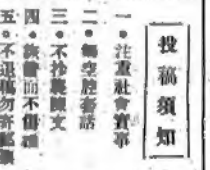 投稿須知
一・注重社會實事
二・　空腔套話
三・不抄襲陳文
四・　　而不
五・不退稿勿寄